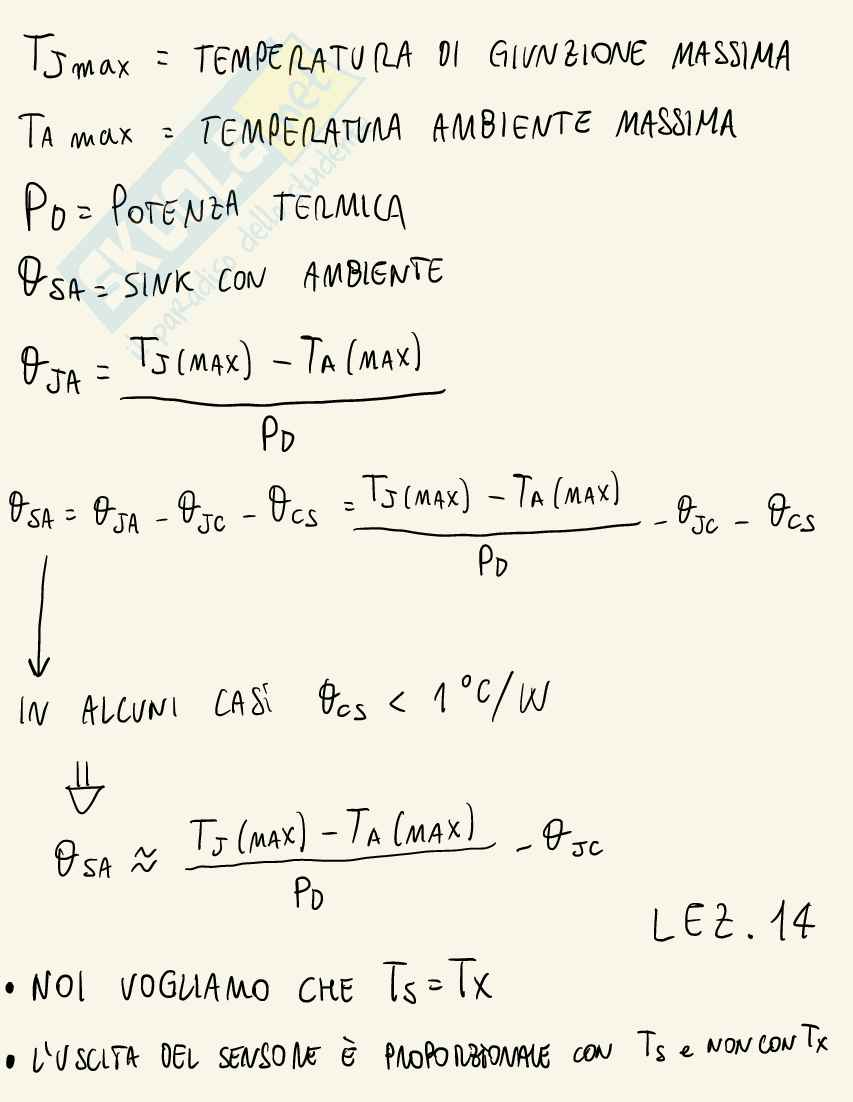 TJ max = TEMPERATURA DI GIUNZIONE MASSIMA
TA max = TEMPERATURA AMBIENTE MASSIMA
PD = POTENZA TERMICA
θSA = SINK CON AMBIENTE
θJA = (TJ(MAX) - TA(MAX)) / PD
θSA = θJA - θJC - θCS = (TJ(MAX) - TA(MAX)) / PD - θJC - θCS
↓
IN ALCUNI CASI θCS < 1°C/W
⇓
θSA ≈ (TJ(MAX) - TA(MAX)) / PD - θJC
LEZ. 14
• NOI VOGLIAMO CHE TS = TX
• L'USCITA DEL SENSORE È PROPORZIONALE CON TS e NON CON TX
SKUOLA.net
il paradiso dello studente